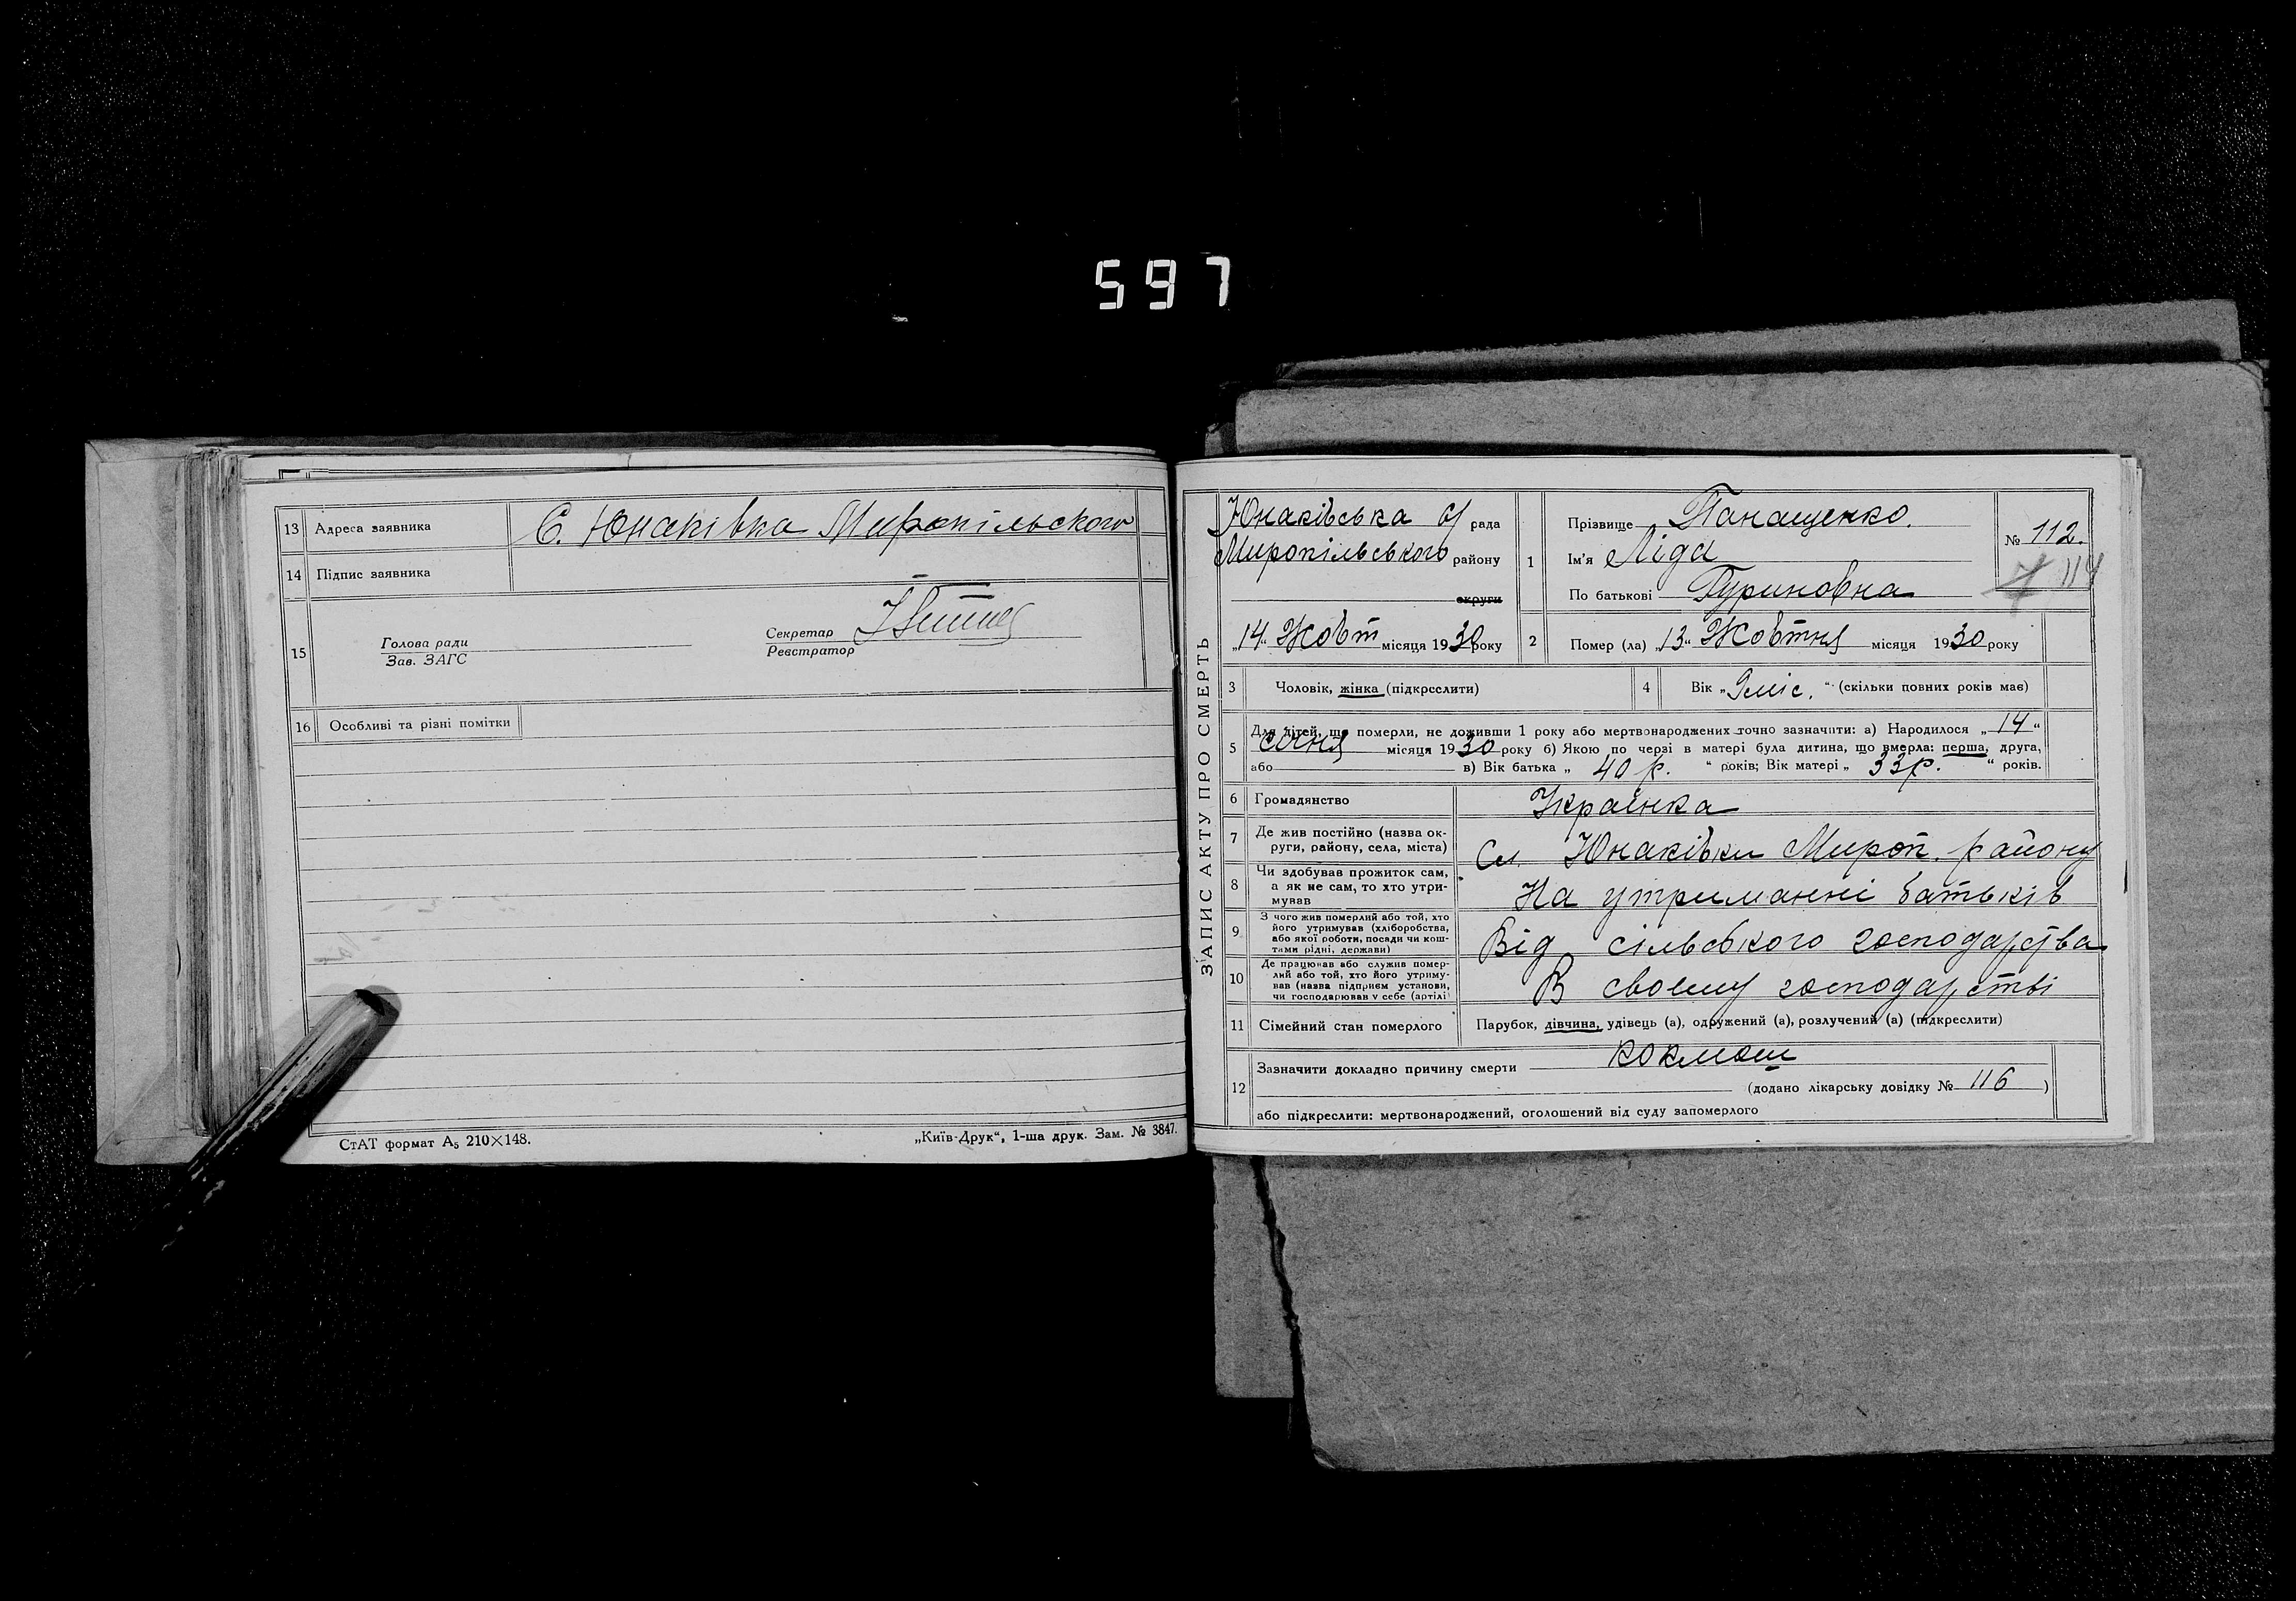 597
13 Адреса заявника С. Юнаківка Миропільского
14 Підпис заявника
15 Голова ради
Зав. ЗАГС
Секретар
Реєстратор
16 Особливі та різні помітки
СтАТ формат А5 210×148.
„Київ-Друк“, 1-ша друк. Зам. № 3847.
ЗАПИС АКТУ ПРО СМЕРТЬ
Юнаківська с/ рада
Миропільського району
округи
„14“ Жовт місяця 1930 року
1 Прізвище Панащенко.
Ім'я Ліда
По батькові Гуриновна
№ 112.
114
2 Помер (ла) „13“ Жовтня місяця 1930 року
3 Чоловік, жінка (підкреслити)
4 Вік „9 міс.“ (скільки повних років має)
5 Для дітей, що померли, не доживши 1 року або мертвонароджених точно зазначити: а) Народилося „14“
січня місяця 1930 року б) Якою по черзі в матері була дитина, що вмерла: перша, друга,
або в) Вік батька „ 40 р. “ років; Вік матері „ 33 р. “ років.
6 Громадянство Українка
7 Де жив постійно (назва ок-
руги, району, села, міста) Сл. Юнаківки Мироп. району
8 Чи здобував прожиток сам,
а як не сам, то хто утри-
мував На утриманні батьків
9 З чого жив померлий або той, хто
його утримував (хліборобства,
або якої роботи, посади чи кош-
тами рідні, держави) Від сільського господарства
10 Де працював або служив помер-
лий або той, хто його утриму-
вав (назва підприєм установи,
чи господарював у себе (артілі) В своєму господарстві
11 Сімейний стан померлого Парубок, дівчина, удівець (а), одружений (а), розлучений (а) (підкреслити)
12 Зазначити докладно причину смерти коклюш
(додано лікарську довідку № 116)
або підкреслити: мертвонароджений, оголошений від суду запомерлого